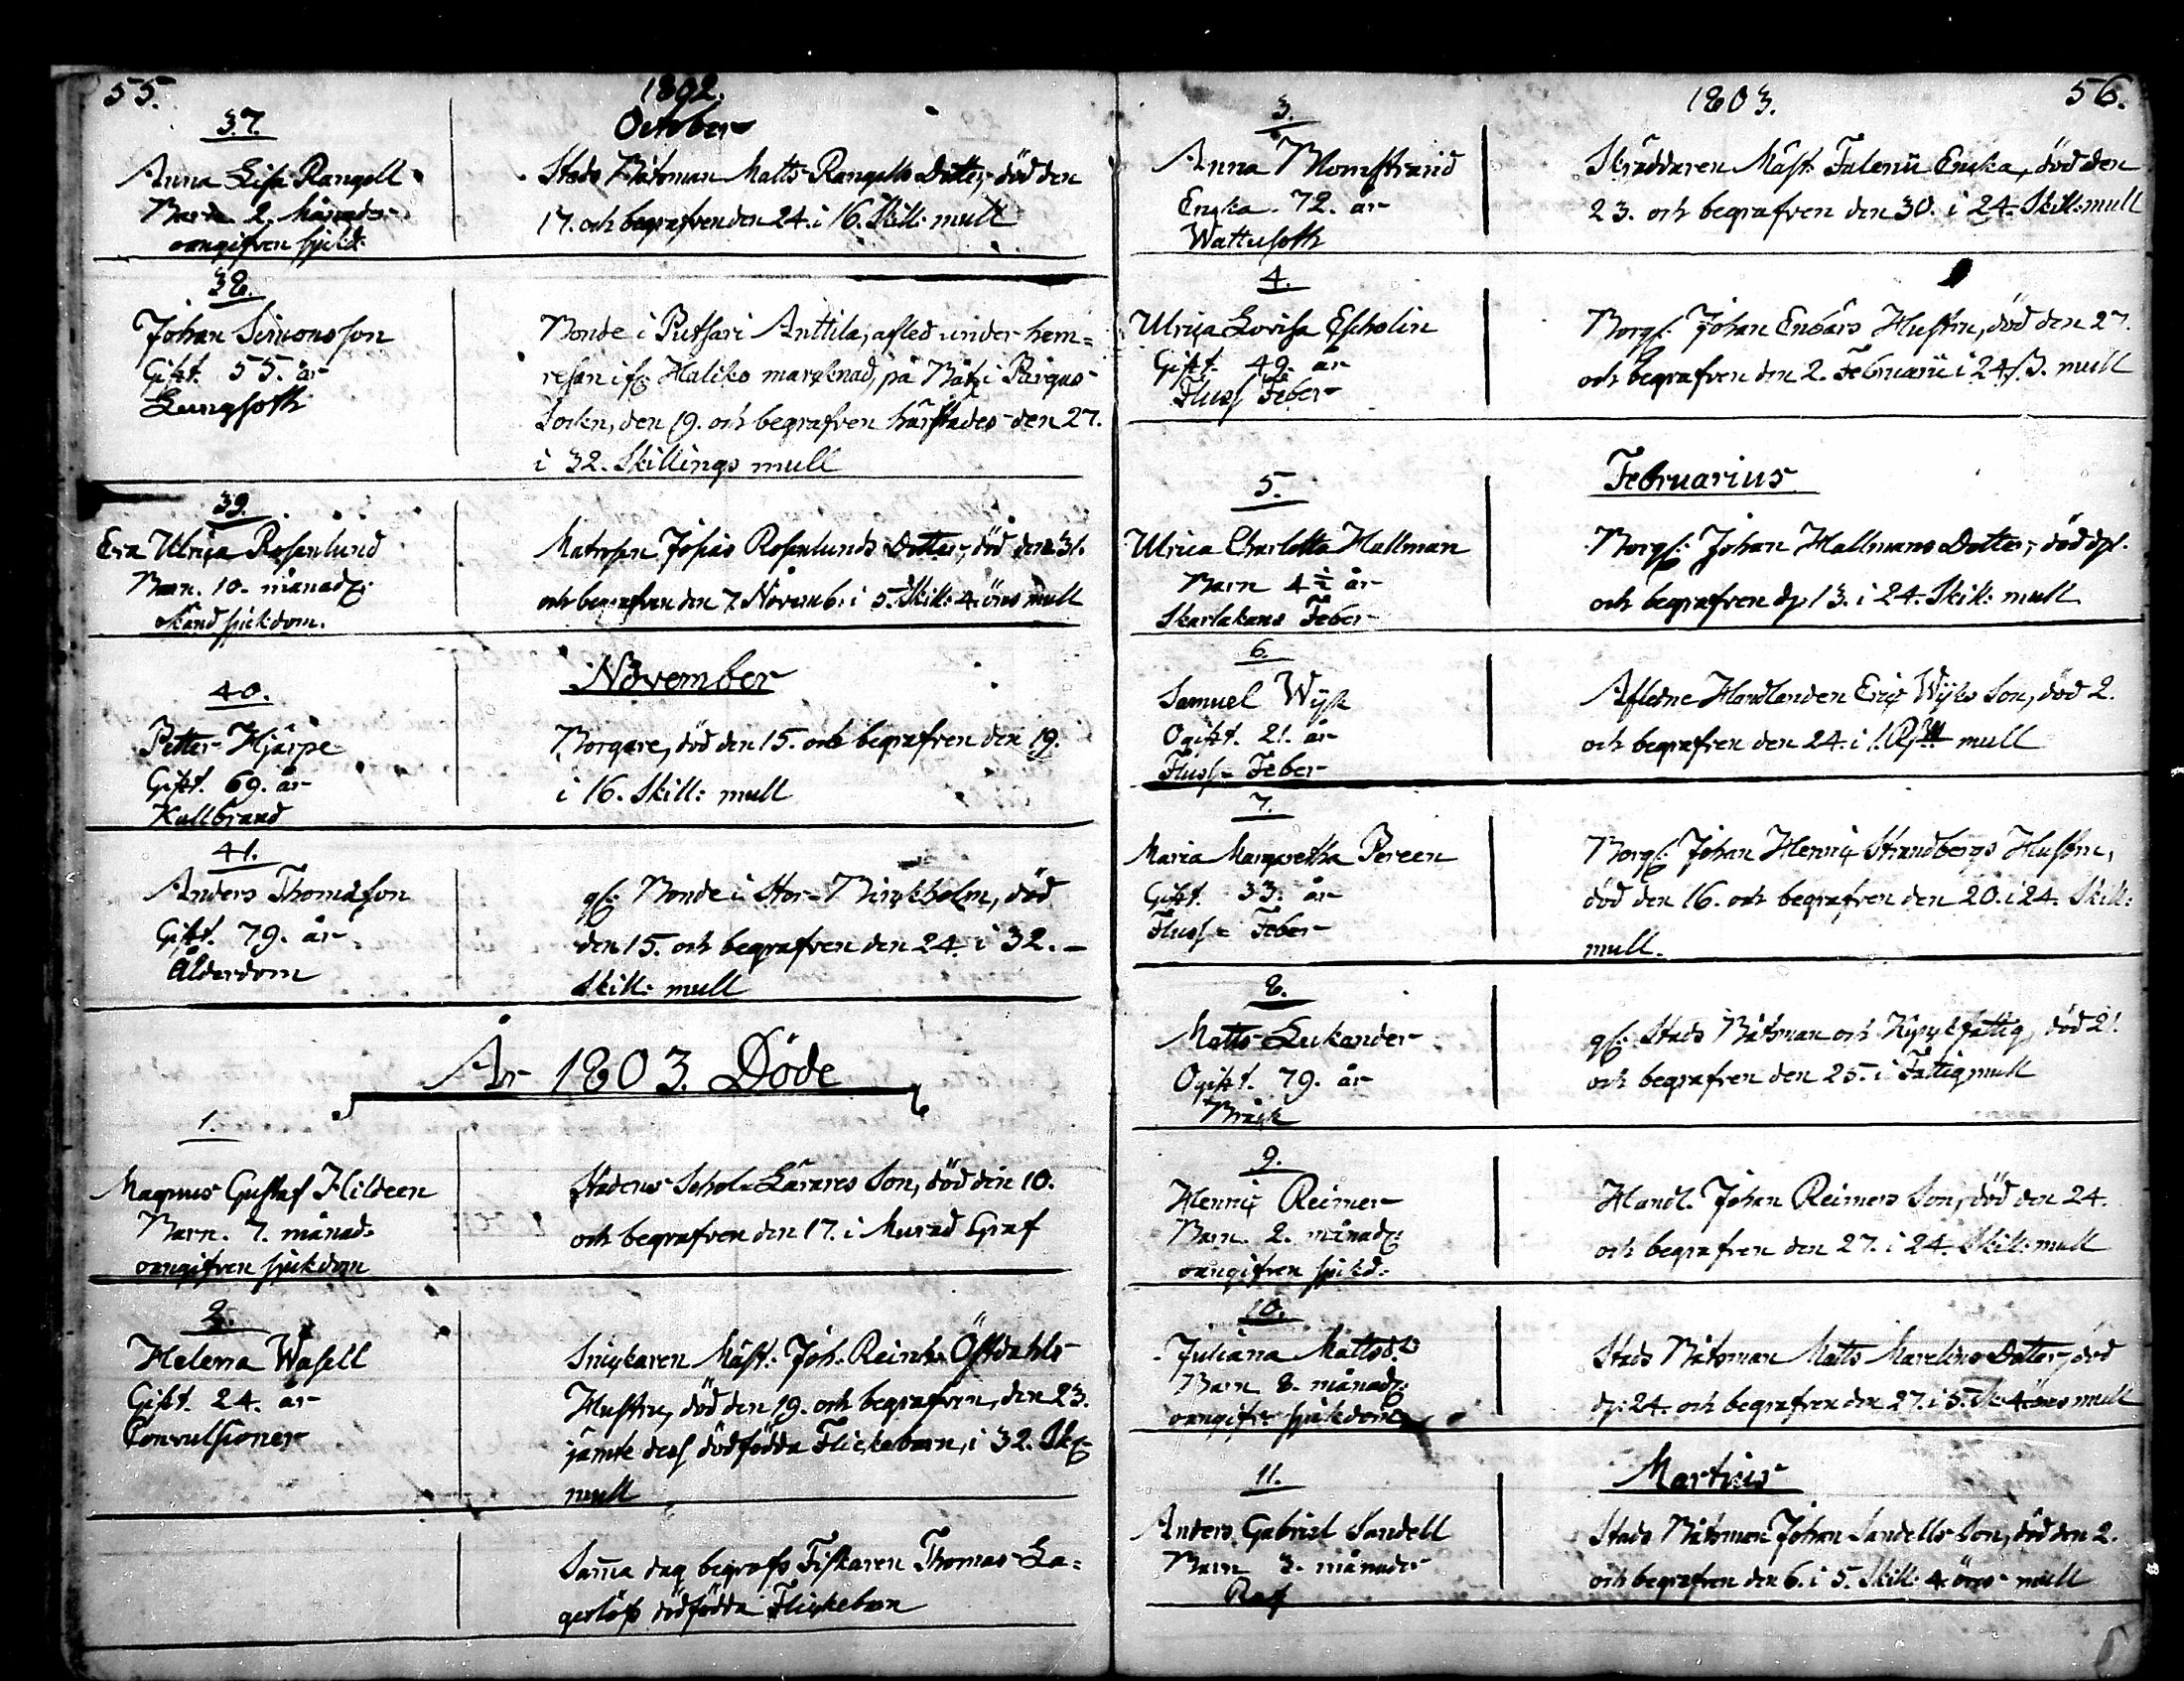 55.
1802.
October
37.
Anna Lisa Rangell
Barn 2. månader
oangifven sjukd:
Stads Båtsman Matts Rangells Dotter, död den
17. och begrafven den 24. i 16. Skill: mull
38.
Johan Simonsson
Gift. 55. år
Lungsoth
Bonde i Putsari Anttila, afled under hem=
resan ifr: Haliko marcknad, på Båt i Pargas
Sockn, den 19. och begrafven härstades den 27.
i 32. Skillings mull
39.
Eva Ulrica Rosenlund
Barn. 10. månad:
okänd sjukdom.
Matrosen Josias Rosenlunds Dotter, död den 31.
och begrafven den 7. Novemb: i 5. Skill: 4. öres mull
November
40.
Petter Hjärpe
Gift. 69. år
Kallbrand
Borgare, död den 15. och begrafven den 19.
i 16. Skill: mull
41.
Anders Thomasson
Gift. 79. år
Ålderdom
gl: Bonde i Stor-Birkholm, död
den 15. och begrafven den 24. i 32.
Skill: mull
År 1803. Döde
1.
Magnus Gustaf Hildeen
Barn. 7. månad:
oangifven sjukdom
Stadens Schol-Lärares Son, död den 10.
och begrafven den 17. i Murad Graf
2.
Helena Wasell
Gift. 24. år
Convulsioner
Snickaren Mäst: Joh. Reinh. Östdahls
Hustru, död den 19. och begrafven, den 23.
jämte dess dödfödda Flickebarn, i 32. Sk:
mull
Samma dag begrofs Fiskaren Thomas La=
gerlöfs dödfödda Flickebarn
1803.
56.
3.
Anna Blomstrand
Encka. 72. år
Wattusoth
Skräddaren Mäst: Falenii Encka, död den
23. och begrafven den 30. i 24. Skill: mull
4.
Ulrica Lovisa Escholin
Gift. 49. år
Fluss Feber
Borg: Johan Enbärs Hustru, död den 27.
och begrafven den 2. Februarii i 24 s. mull
Februarius
5.
Ulrica Charlotta Hallman
Barn 4 1/2 år
Skarlakans Feber
Borg: Johan Hallmans Dotter, död d: 1.
och begrafven d: 13. i 24. Skill: mull
6.
Samuel Wijk
Ogift. 21. år
Fluss= Feber
Afledne Handlanden Eric Wijks Son, död 2.
och begrafven den 24. i 1. R mull
7.
Maria Margaretha Pereen
Gift. 33. år
Fluss= Feber
Borg: Johan Henric Strandbergs Hustru,
död den 16. och begrafven den 20. i 24. Skill:
mull.
8.
Matts Lukander
Ogift. 79. år
Bråck
gl: Stads Båtsman och Kyrckfattig, död 21.
och begrafven den 25. i Fattigmull
9.
Henric Reimer
Barn. 2. månad:
oangifven sjukd:
Handl. Johan Reimers Son, död den 24.
och begrafven den 27. i 24. Skill: mull
10.
Juliana Mattsd:r
Barn 8. månad:
oangifv: sjukdom
Stads Båtsman Matts Marelins Dotter, död
d: 24. och begrafven den 27. i 5. Sk: 4. öres mull
Martius
11.
Anders Gabriel Sandell
Barn 3. månader
Stads Båtsman Johan Sandells Son, död den 2.
och begrafven den 6. i 5. Skill: 4. öres mull